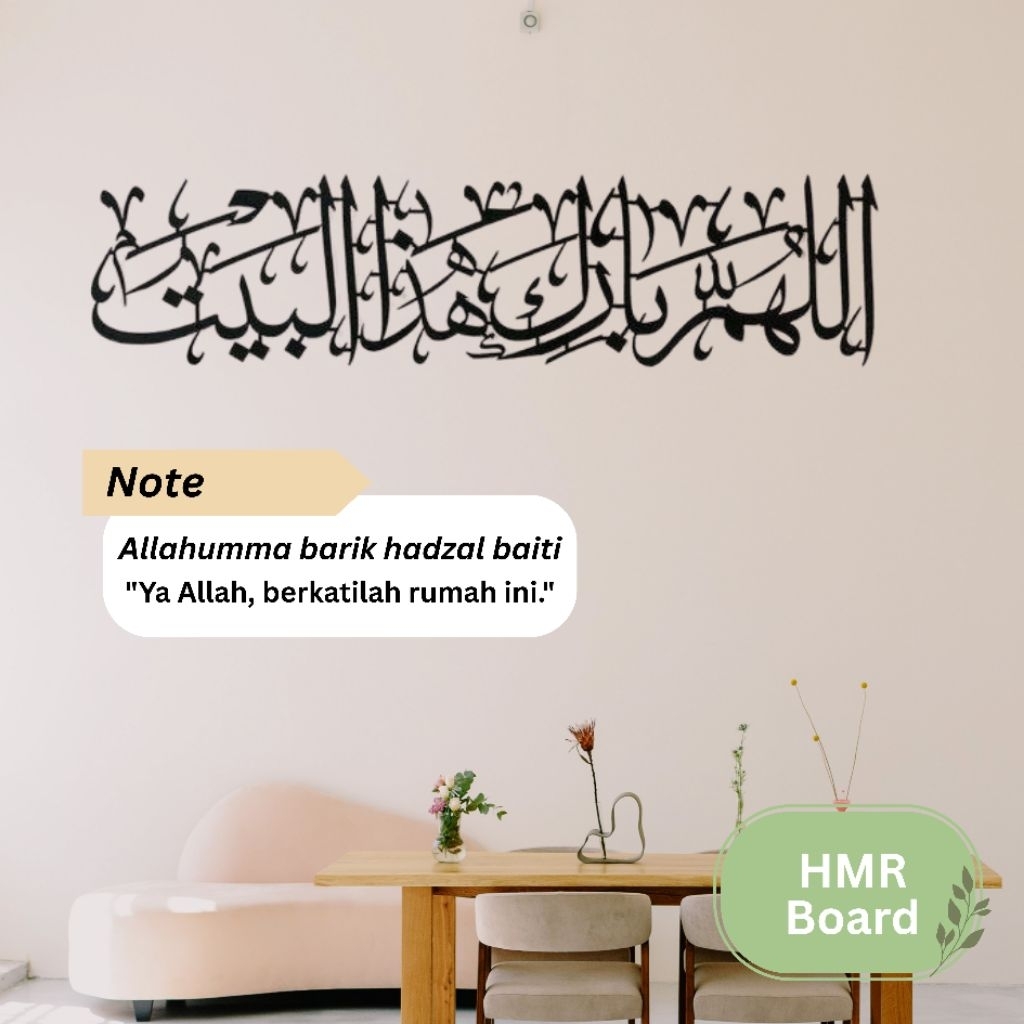 اللهم بارك هذا البيت
Note
Allahumma barik hadzal baiti
"Ya Allah, berkatilah rumah ini."
HMR
Board